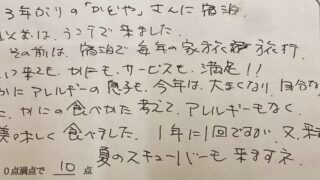 3年ぶりの「かどや」さんに宿泊
以前は、うこうで来ました。
その前は、宿泊で毎年の家族旅行
来ても、かにも、サービスも、満足!!
かにアレルギーの息子も、今年は、大きくなり、自分な
た、かにの食べかた考えて、アレルギーもなく、
美味しく食べました。1年に1回ですが、又、来
夏のスキューバーも来ますネ
0点満点で 10 点